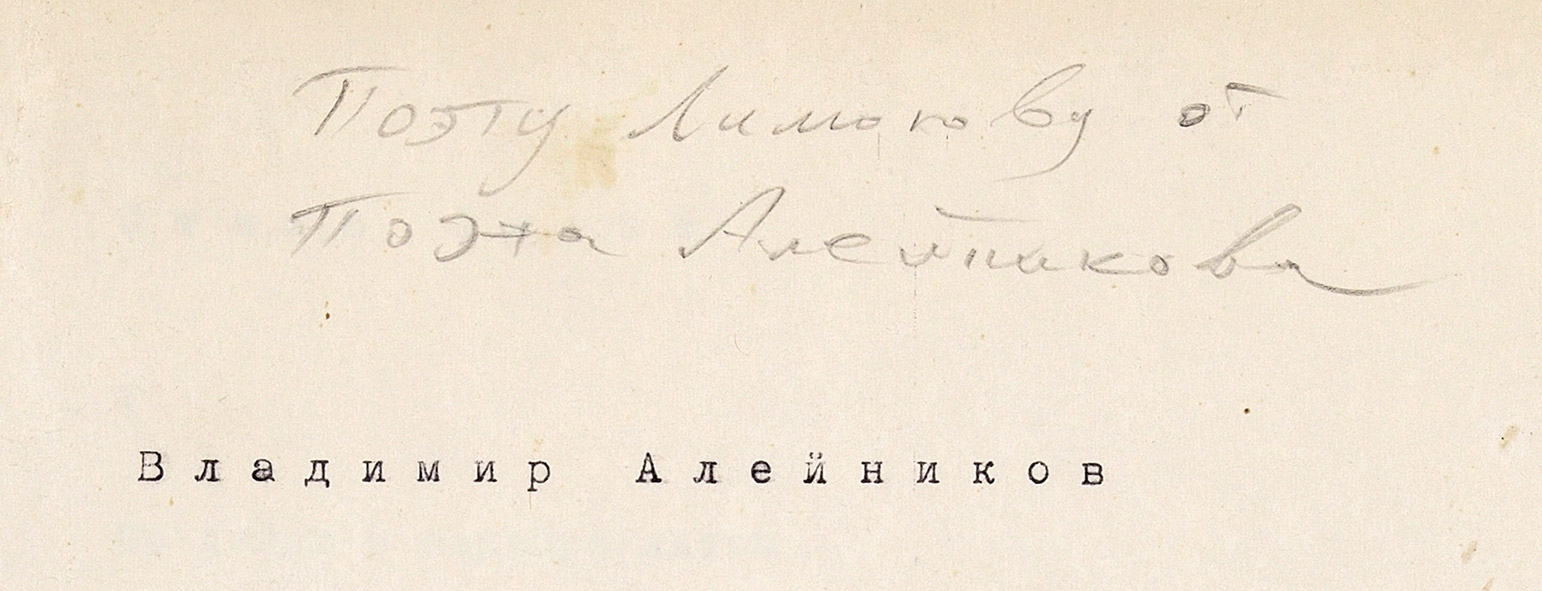 Поэту Лимонову от
Поэта Алейникова
Владимир Алейников